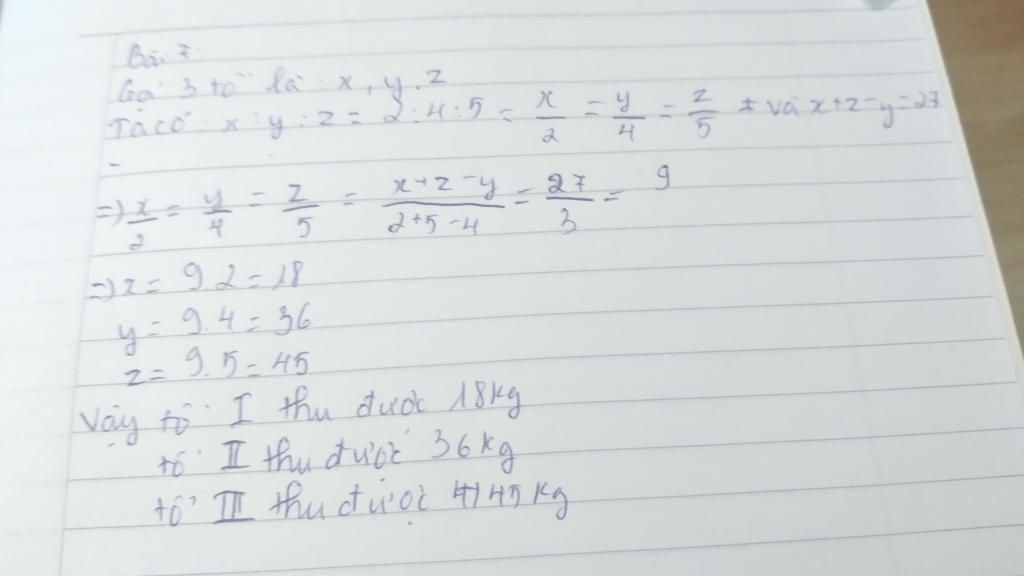 Bài 7:
Gọi 3 tổ là: x, y, z
Ta có: x : y : z = 2 : 4 : 5 = x/2 = y/4 = z/5 và x + z - y = 27
=) x/2 = y/4 = z/5 = x+z-y/2+5-4 = 27/3 = 9
=) x = 9.2 = 18
y = 9.4 = 36
z = 9.5 = 45
Vậy tổ I thu được 18kg
tổ II thu được 36kg
tổ III thu được 45kg